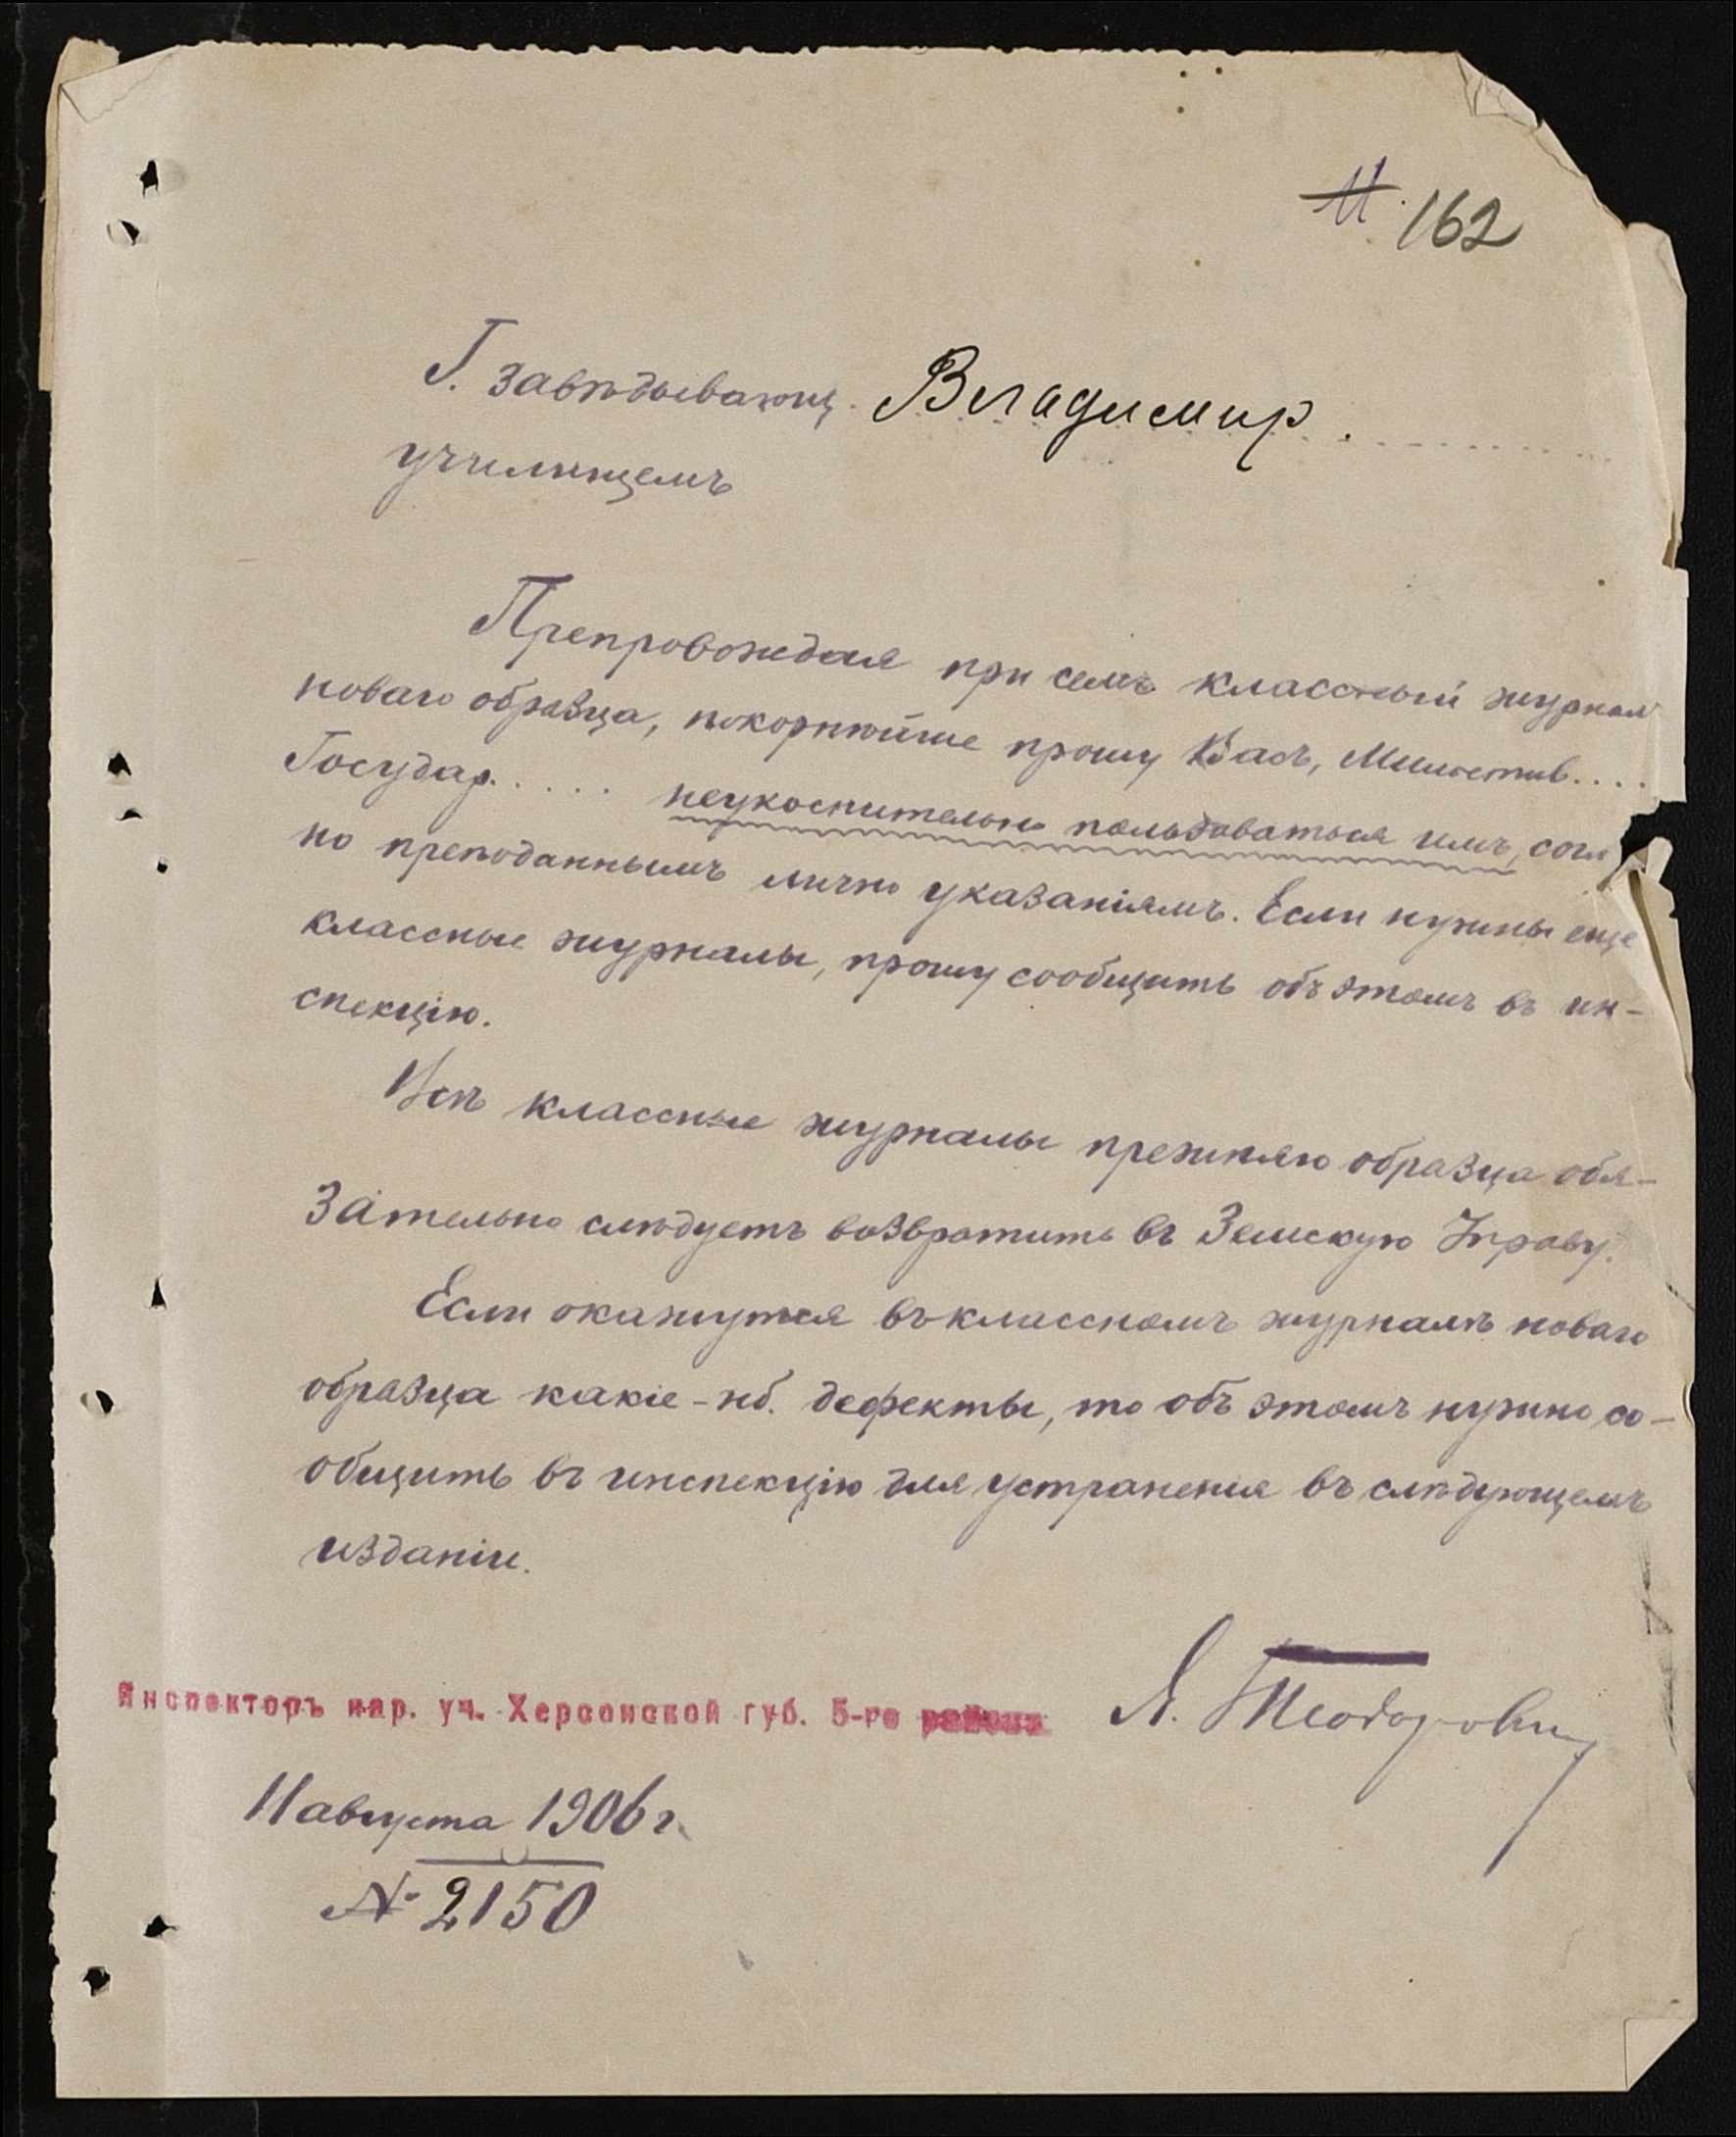 11. 162
Г. завѣдывающ. Владимир.
училищемъ
Препровождая при семъ классный журнал
новаго образца, покорнѣйше прошу Васъ, Милостив....
Государ..... неукоснительно пользоваться имъ, согл
но преподаннымъ лично указаніямъ. Если нужны еще
классные журналы, прошу сообщить объ этомъ въ ин-
спекцію.
Всѣ классные журналы прежняго образца обя-
зательно слѣдуетъ возвратить въ Земскую Управу.
Если окажутся въ классномъ журналѣ новаго
образца какіе-нб. дефекты, то объ этомъ нужно со-
общить въ инспекцію для устраненія въ слѣдующемъ
изданіи.
Инспекторъ нар. уч. Херсонской губ. 5-го района Я. Теодорович
11 августа 1906 г.
№ 2150